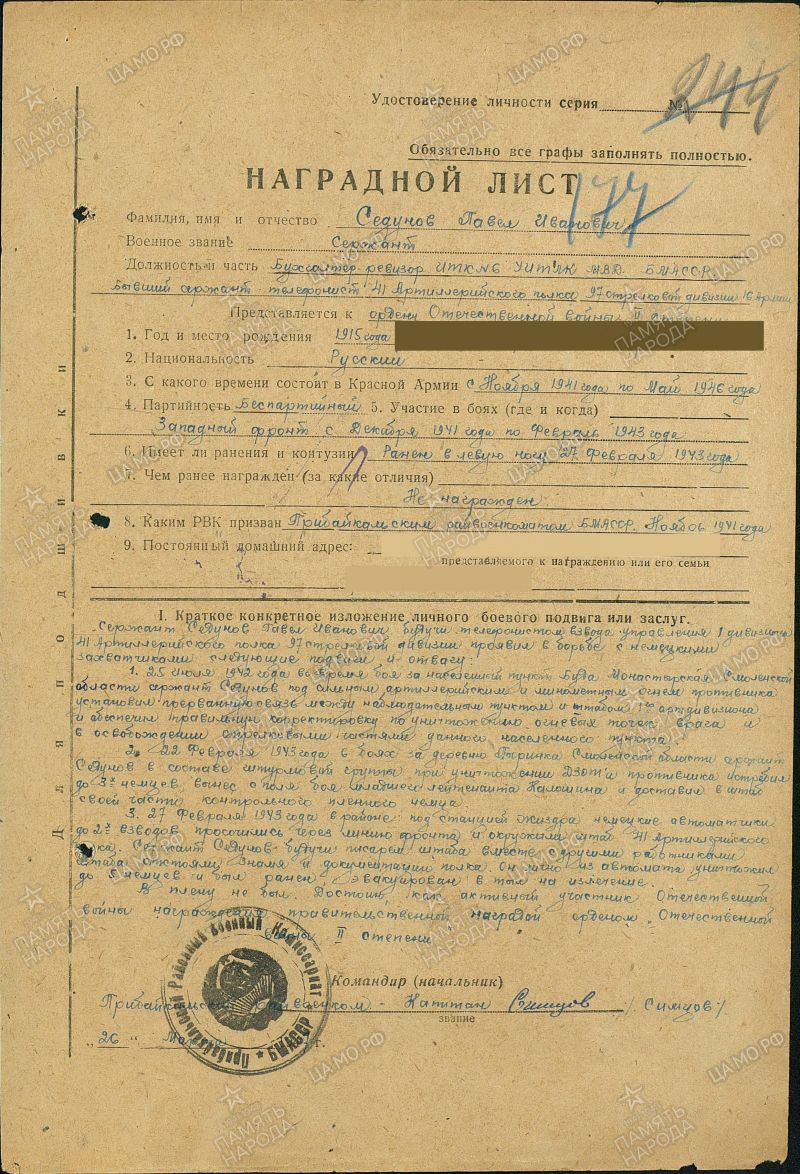 Удостоверение личности серия № 244
Обязательно все графы заполнять полностью.
НАГРАДНОЙ ЛИСТ 177
Фамилия, имя и отчество Седунов Павел Иванович
Военное звание Сержант
Должность и часть Бухгалтер-ревизор ИТК №6 УИТЛК МВД. БМАССР.
Бывший сержант-телефонист 41 Артиллерийского полка 97 стрелковой дивизии 16 Армии
Представляется к ордену Отечественной войны II степени
1. Год и место рождения 1915 года
2. Национальность Русский
3. С какого времени состоит в Красной Армии с Ноября 1941 года по Май 1946 года
4. Партийность Беспартийный 5. Участие в боях (где и когда)
Западный фронт с Декабря 1941 года по Февраль 1943 года
6. Имеет ли ранения и контузии Ранен в левую ногу 27 Февраля 1943 года
7. Чем ранее награжден (за какие отличия)
Не награжден
8. Каким РВК призван Прибайкальским райвоенкоматом БМАССР. Ноябрь 1941 года
9. Постоянный домашний адрес:
представляемого к награждению или его семьи
I. Краткое конкретное изложение личного боевого подвига или заслуг.
Сержант Седунов Павел Иванович будучи телефонистом взвода управления 1 дивизиона
41 Артиллерийского полка 97 стрелковой дивизии проявил в борьбе с немецкими
захватчиками следующие подвиги и отвагу:
1. 25 Июля 1942 года во время боя за населенный пункт Буда Монастырская Смоленской
области сержант Седунов под сильным артиллерийским и минометным огнем противника
установил прерванную связь между наблюдательным пунктом и штабом артдивизиона
и обеспечил правильную корректировку по уничтожению огневых точек врага и
в освобождении стрелковыми частями данного населенного пункта.
2. 22 Февраля 1943 года в боях за деревню Смоленской области сержант
Седунов в составе штурмовой группы при уничтожении ДЗОТа противника истребил
до 3х немцев, вынес с поля боя младшего лейтенанта и доставил в штаб
своей части контрольного пленного немца.
3. 27 Февраля 1943 года в районе под станцией Жиздра немецкие автоматчики
до 2х взводов просочились через линию фронта и окружили штаб 41 Артиллерийского
полка. Сержант Седунов будучи писарем штаба вместе с другими работниками
штаба отстояли Знамя и документацию полка. Он лично из автомата уничтожил
до 5 немцев и был ранен, эвакуирован в тыл на излечение.
В плену не был. Достоин, как активный участник Отечественной
войны награждения правительственной наградой орденом „Отечественной
войны II степени"
Командир (начальник)
Прибайкальский райвоенком - Капитан /Симцов/
звание
„26" г.
Прибайкальский Районный Военный Комиссариат ★ БМАССР ★
Для подшивки
ПАМЯТЬ НАРОДА
ЦАМО.РФ